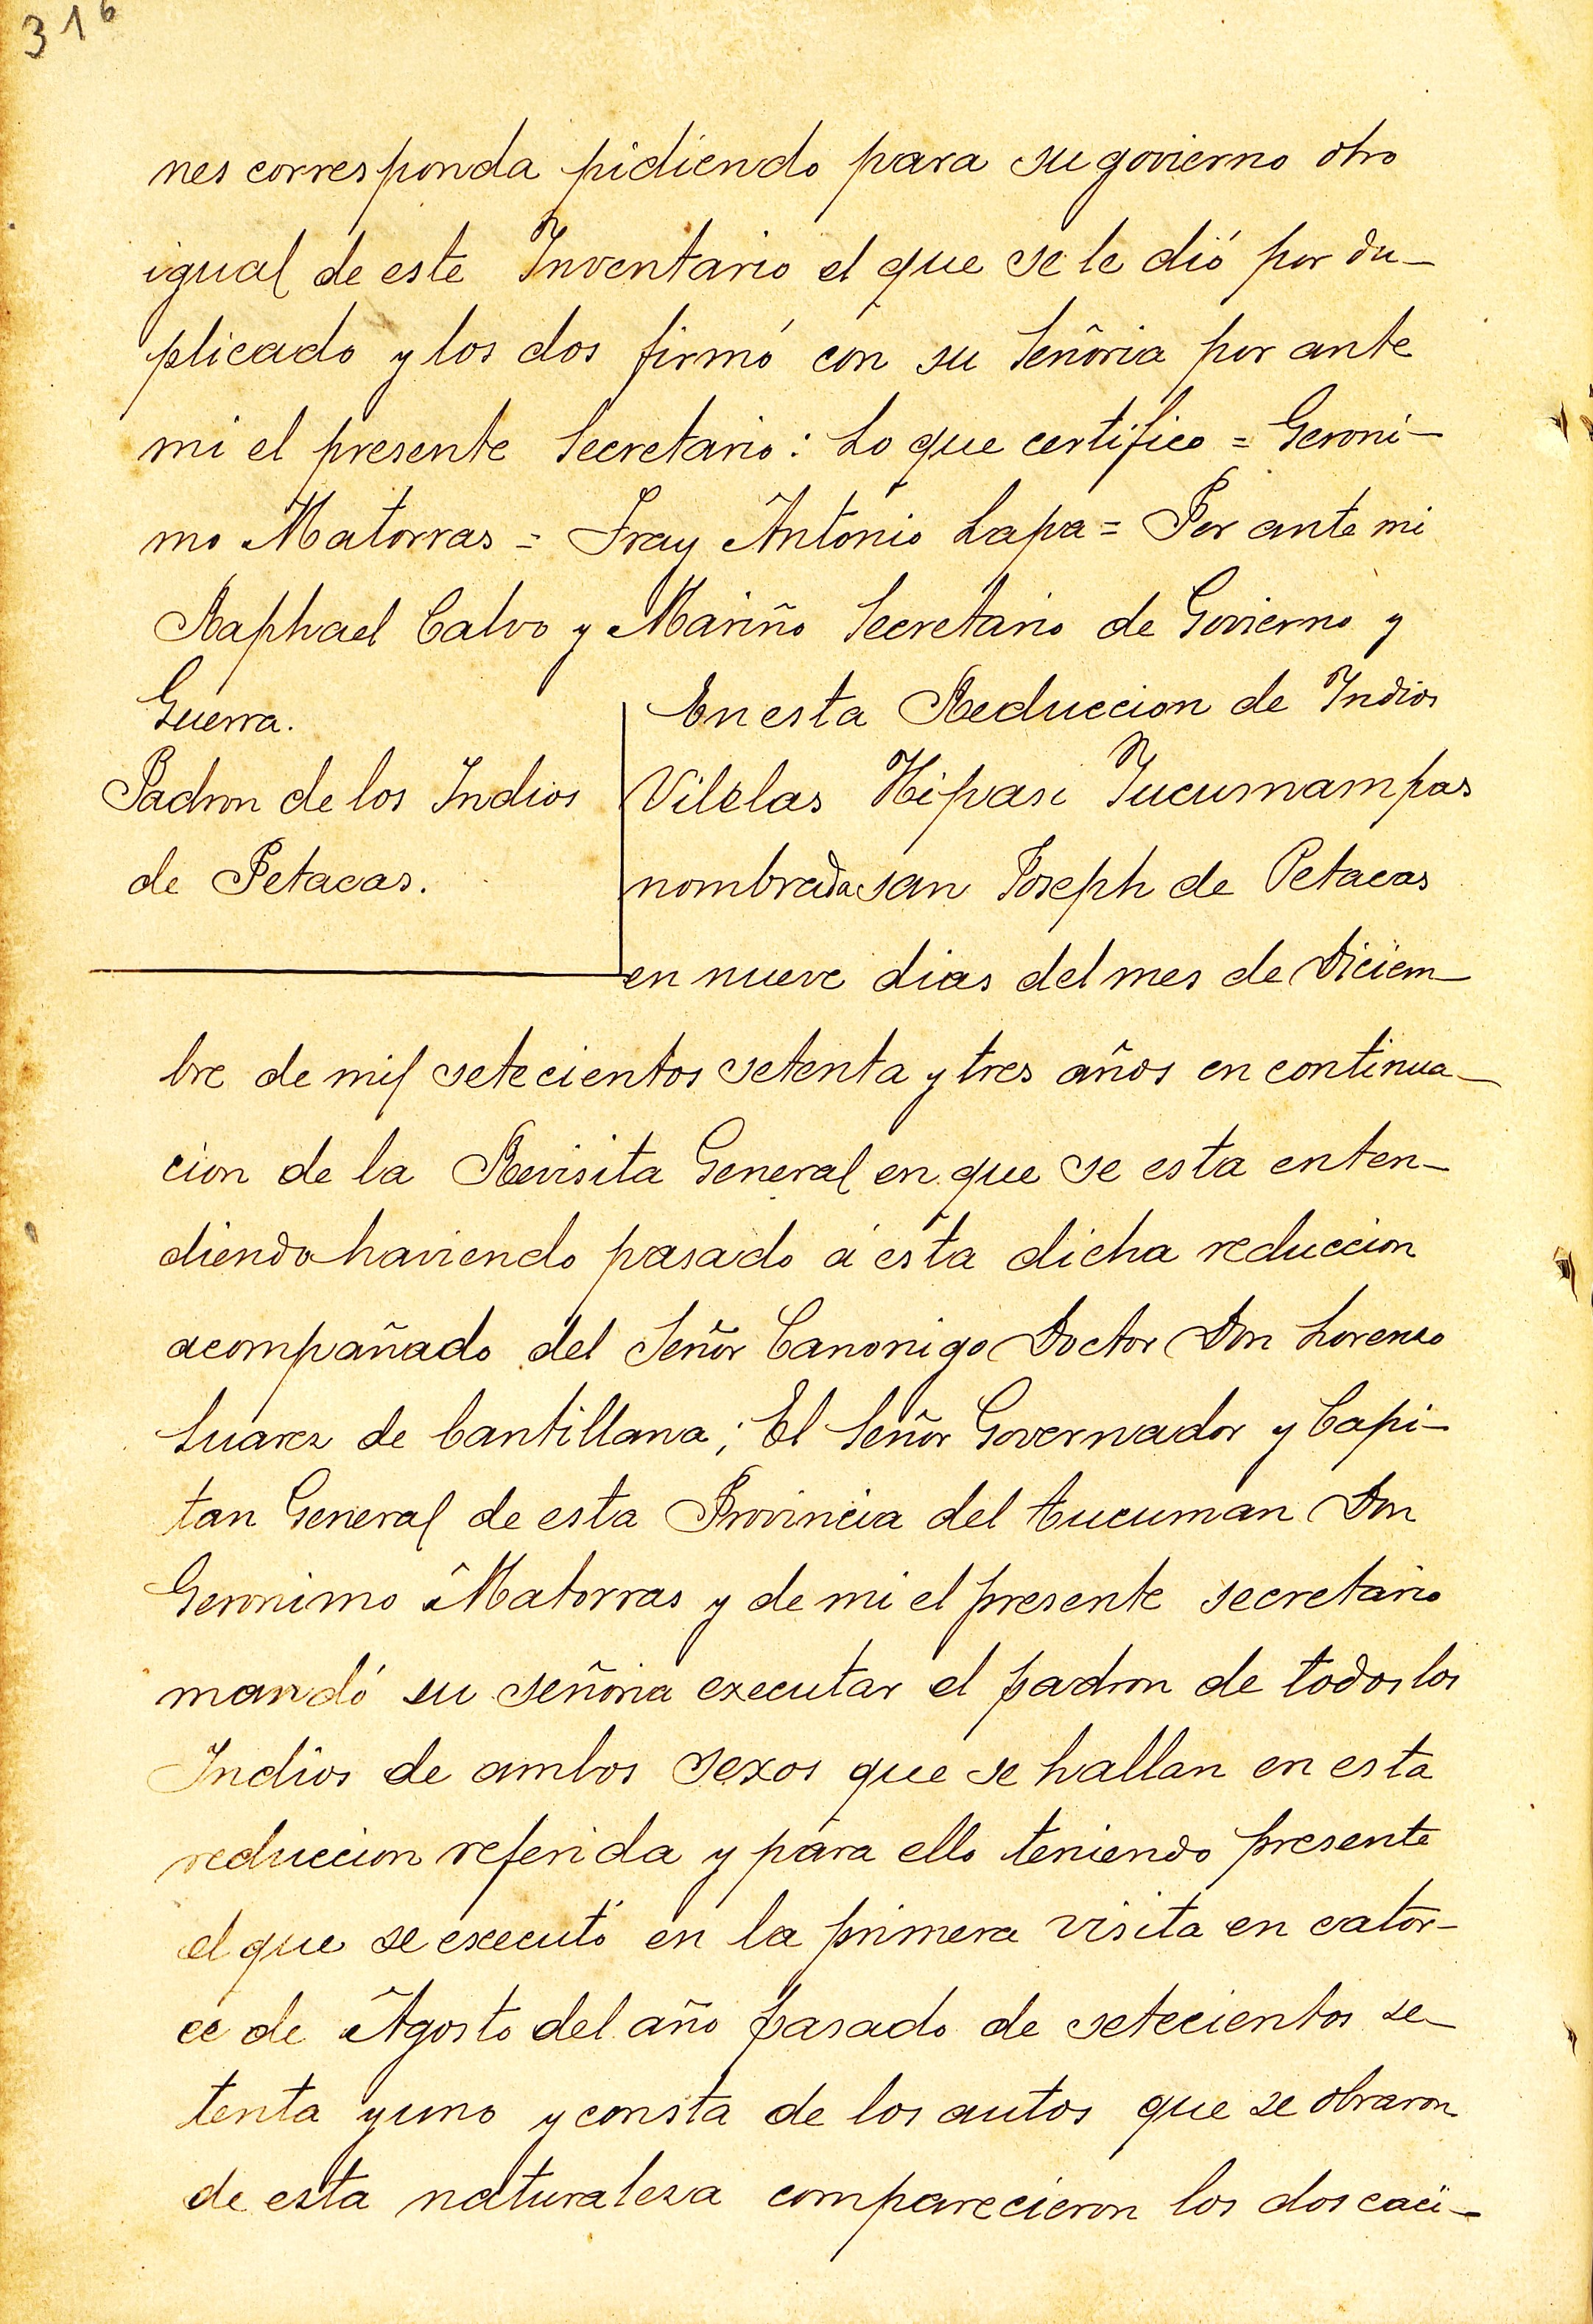 316
nes corresponda pidiendo para su govierno otro
igual de este Inventario el que se le dió por du-
plicado y los dos firmó con su Señoria por ante
mi el presente Secretario: Lo que certifico = Geroni-
mo Matorras = Fray Antonio Lapa = Por ante mi
Raphael Calvo y Mariño Secretario de Govierno y
Guerra.
Padron de los Indios
de Petacas.
En esta Reduccion de Indios
Vilelas Hipasi Tucumampas
nombrada san Joseph de Petacas
en nueve dias del mes de Diciem-
bre de mil setecientos setenta y tres años en continua-
cion de la Revisita General en que se esta enten-
diendo haviendo pasado á esta dicha reduccion
acompañado del Señor Canonigo Doctor Don Lorenzo
Suarez de Cantillana; El Señor Governador y Capi-
tan General de esta Provincia del tucuman Don
Geronimo Matorras y de mi el presente secretario
mandó su señoria executar el padron de todos los
Indios de ambos sexos que se hallan en esta
reduccion referida y para ello teniendo presente
el que se executó en la primera visita en cator-
ce de Agosto del año pasado de setecientos se-
tenta y uno y consta de los autos que se obraron
de esta naturalesa comparecieron los dos caci-